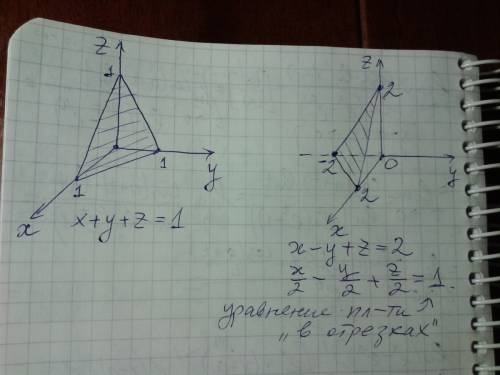 z
1
1
1
y
x
x+y+z=1
z
2
-2
0
2
y
x
x-y+z=2
x/2 - y/2 + z/2 = 1
уравнение пл-ти
„в отрезках"